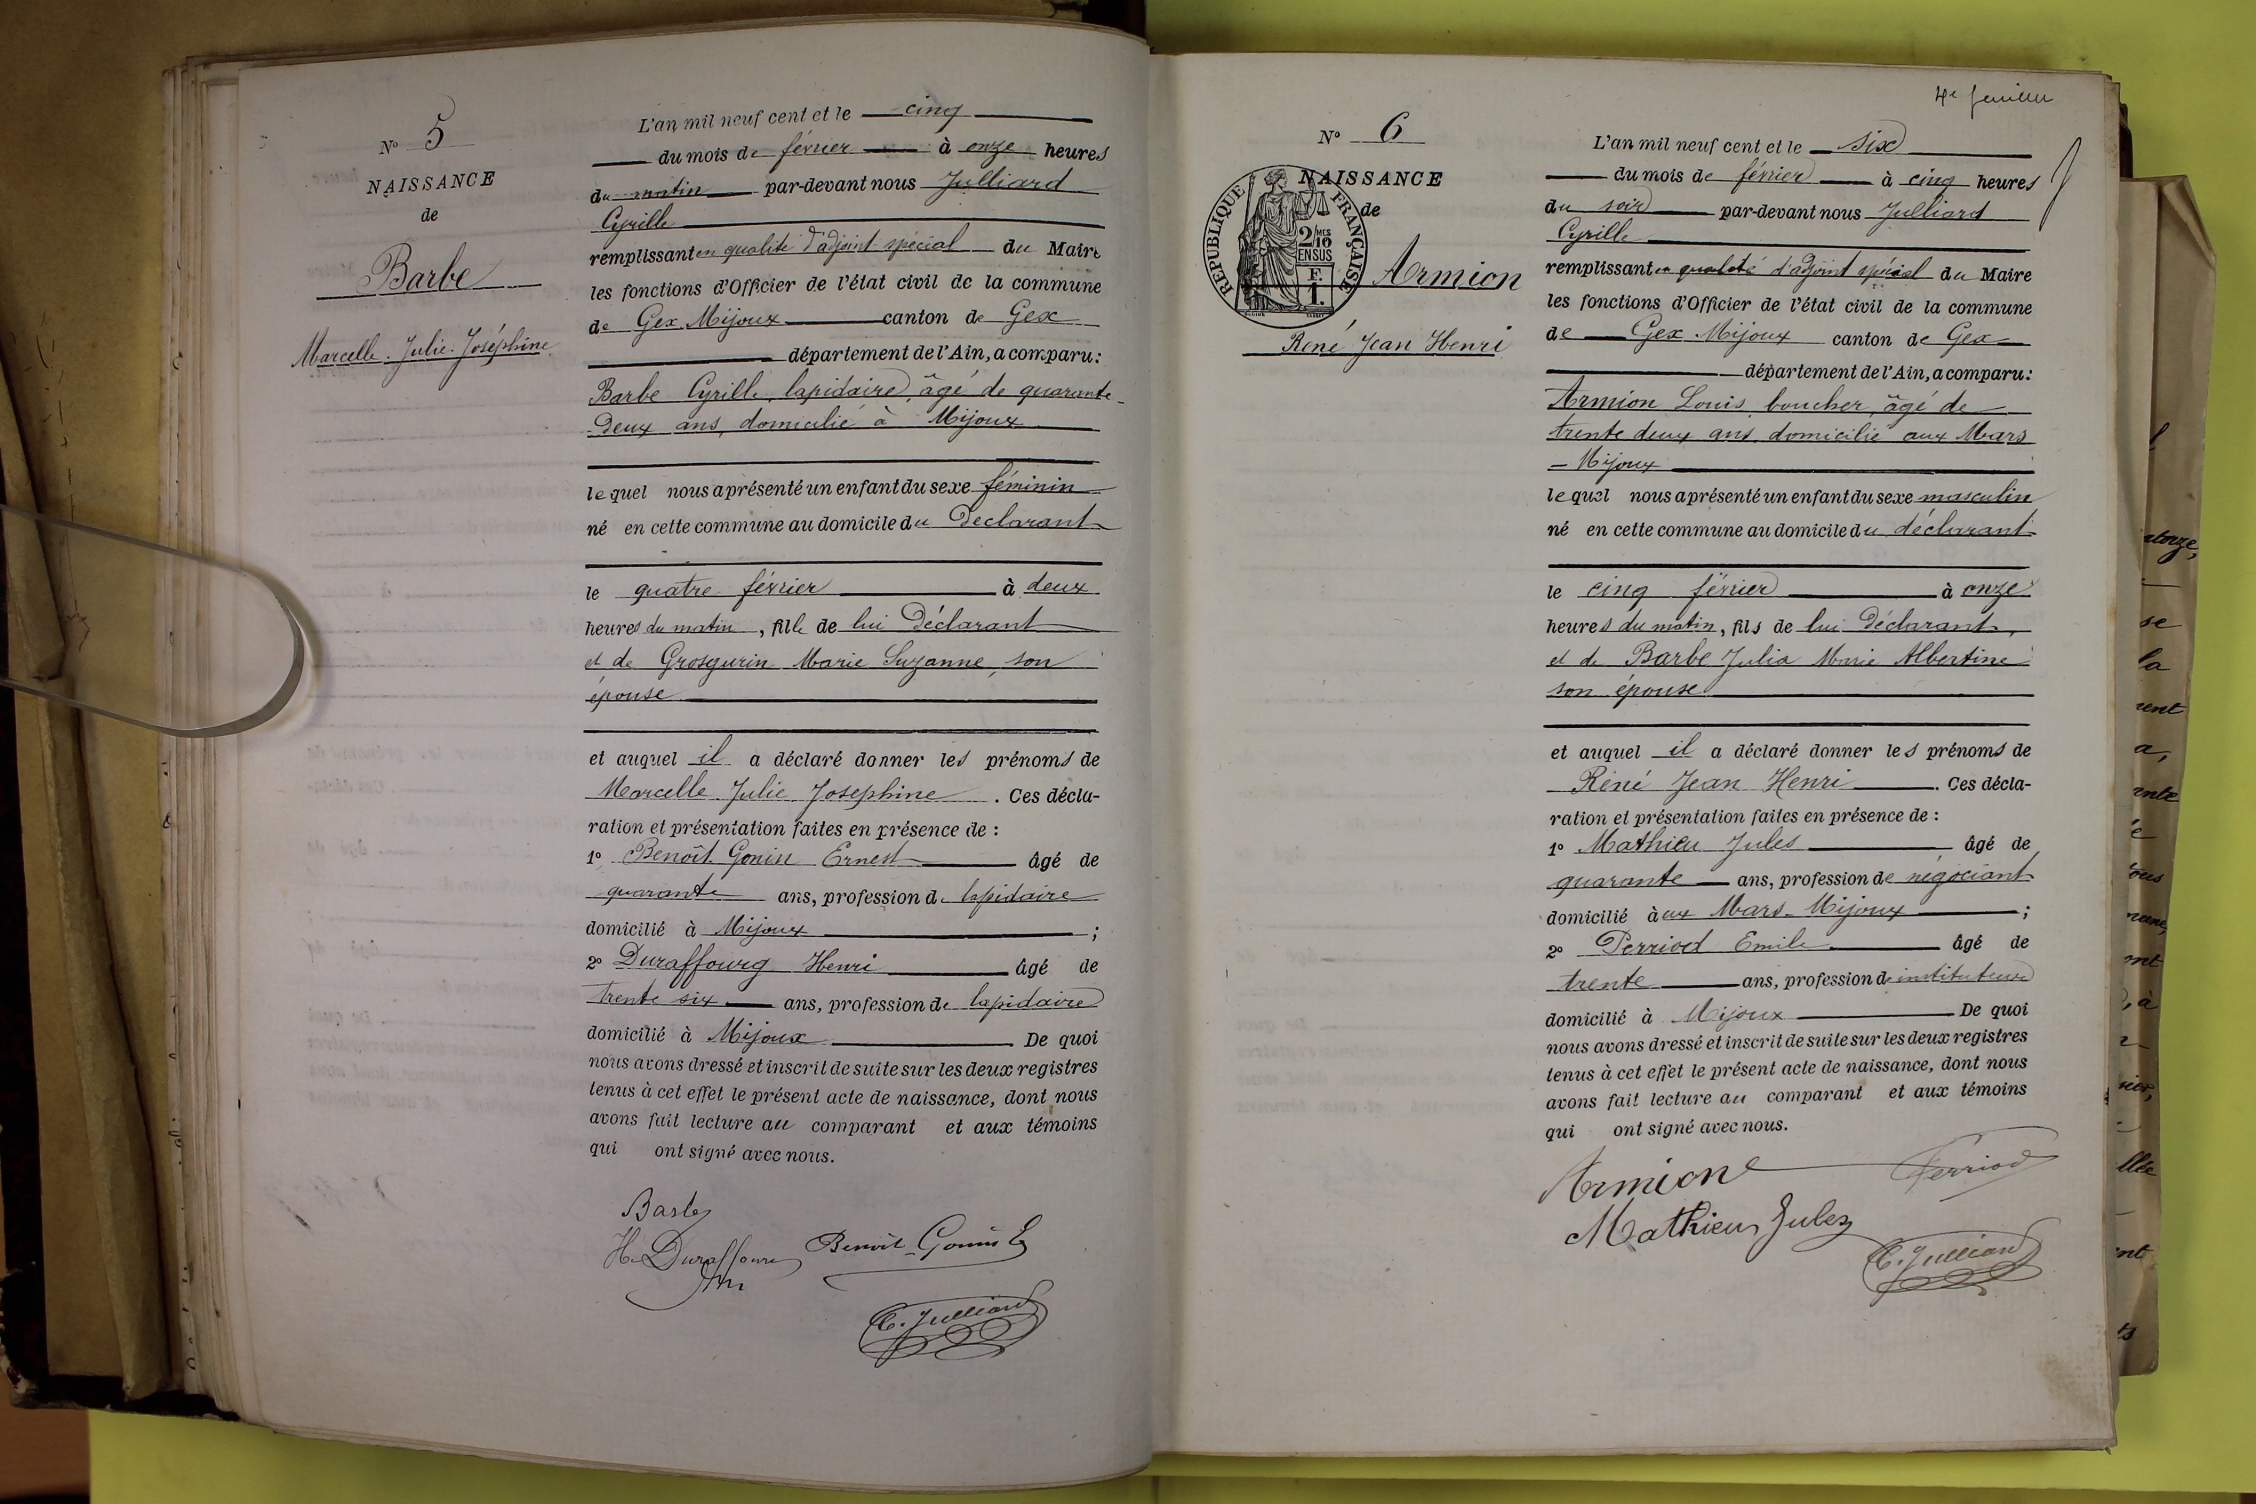 N° 5
NAISSANCE
de
Barbe
Marcelle Julie Joséphine
L'an mil neuf cent et le cinq
du mois de février à onze heures
du matin par-devant nous Julliard
Cyrille
remplissant en qualité d'adjoint spécial du Maire
les fonctions d'Officier de l'état civil de la commune
de Gex Mijoux canton de Gex
département de l'Ain, a comparu :
Barbe Cyrille, lapidaire, âgé de quarante-
deux ans, domicilié à Mijoux
lequel nous a présenté un enfant du sexe féminin
né en cette commune au domicile du déclarant
le quatre février à deux
heures du matin, fille de lui Déclarant
et de Grosgurin Marie Suzanne, son
épouse
et auquel il a déclaré donner les prénoms de
Marcelle Julie Josephine. Ces décla-
ration et présentation faites en présence de :
1° Benoît Gonin Ernest âgé de
quarante ans, profession de lapidaire
domicilié à Mijoux ;
2° Duraffourg Henri âgé de
trente six ans, profession de lapidaire
domicilié à Mijoux De quoi
nous avons dressé et inscrit de suite sur les deux registres
tenus à cet effet le présent acte de naissance, dont nous
avons fait lecture au comparant et aux témoins
qui ont signé avec nous.
Barbe
H. Duraffourg Benoît-Gonin E
C. Julliard
4e feuillet
N° 6
NAISSANCE
de
RÉPUBLIQUE FRANÇAISE
2/10 MES
EN SUS
F.
1.
Armion
René Jean Henri
L'an mil neuf cent et le six
du mois de février à cinq heures
du soir par-devant nous Julliard
Cyrille
remplissant en qualité d'adjoint spécial du Maire
les fonctions d'Officier de l'état civil de la commune
de Gex Mijoux canton de Gex
département de l'Ain, a comparu :
Armion Louis, boucher, âgé de
trente deux ans, domicilié aux Mars
- Mijoux
lequel nous a présenté un enfant du sexe masculin
né en cette commune au domicile du déclarant
le cinq février à onze
heures du matin, fils de lui Déclarant,
et de Barbe Julia Marie Albertine
son épouse
et auquel il a déclaré donner les prénoms de
Réné Jean Henri. Ces décla-
ration et présentation faites en présence de :
1° Mathieu Jules âgé de
quarante ans, profession de négociant
domicilié aux Mars-Mijoux ;
2° Perriod Emile âgé de
trente ans, profession de instituteur
domicilié à Mijoux De quoi
nous avons dressé et inscrit de suite sur les deux registres
tenus à cet effet le présent acte de naissance, dont nous
avons fait lecture au comparant et aux témoins
qui ont signé avec nous.
Armion Perriod
Mathieu Jules
C. Julliard